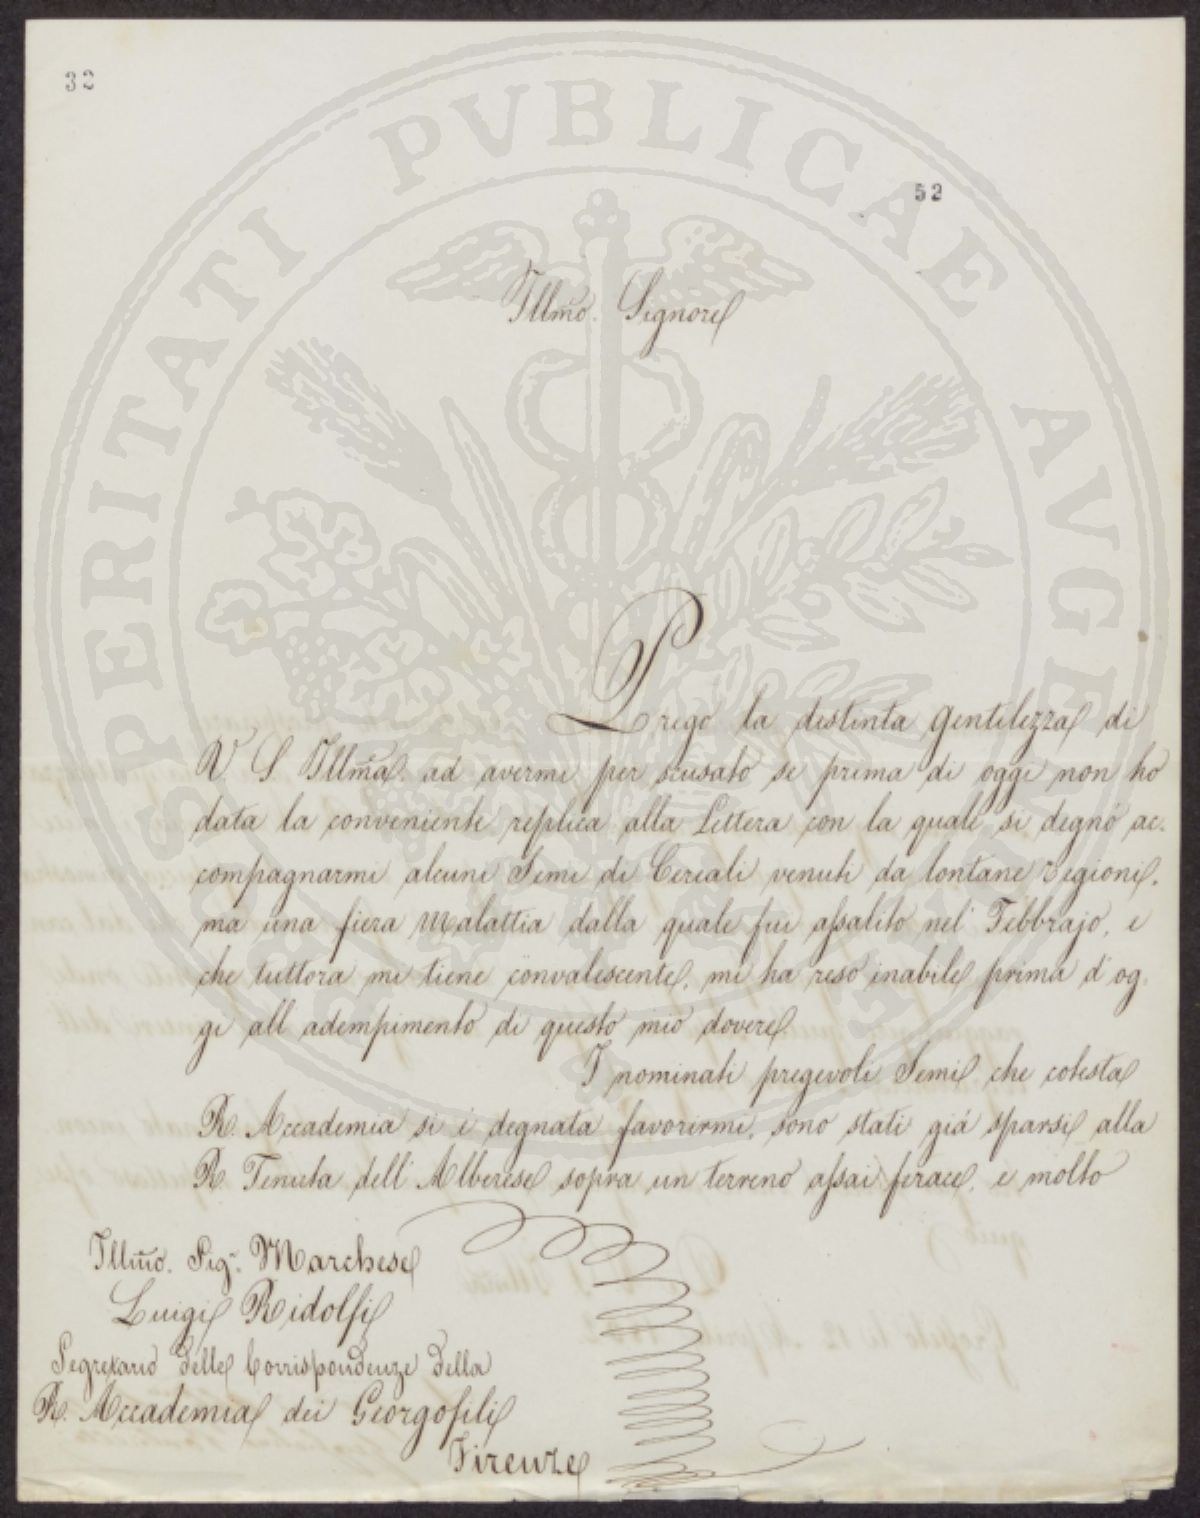 32
52
PROSPERITATI PVBLICAE AVGENDAE
Illmo. Signore
Prego la distinta gentilezza di
V. S Illma. ad avermi per scusato se prima di oggi non ho
data la conveniente replica alla Lettera con la quale si degnó ac-
compagnarmi alcuni Semi di Cereali venuti da lontane regioni.
ma una fiera Malattia dalla quale fui assalito nel Febbrajo, e
che tuttora mi tiene convalescente, mi ha reso inabile prima d'og-
gi all'adempimento di questo mio dovere
I nominati pregevoli Semi che cotesta
R. Accademia si é degnata favorirmi, sono stati giá sparsi alla
R. Tenuta dell'Alberese sopra un terreno assai ferace, e molto
Illmo. Sigr. Marchese
Luigi Ridolfi
Segretario delle Corrispondenze della
R. Accademia dei Georgofili
Firenze